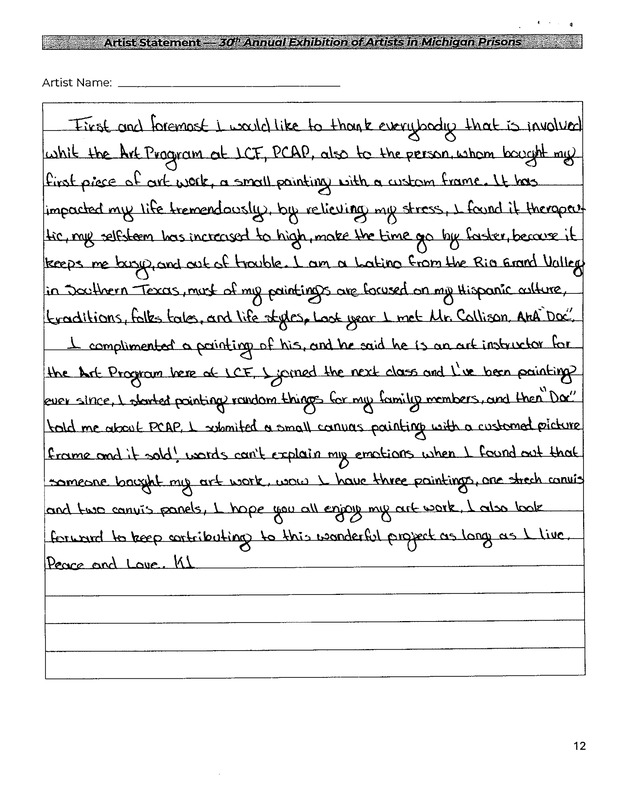 Artist Statement — 30th Annual Exhibition of Artists in Michigan Prisons
Artist Name:
First and foremost I would like to thank everybody that is involved
whit the Art Program at LCF, PCAP, also to the person, whom bought my
first piece of art work, a small painting with a custom frame. It has
impacted my life tremendously, by relieving my stress, I found it therapeu-
tic, my selfsteem has increased to high, make the time go by faster, because it
keeps me busy, and out of trouble. I am a Latino from the Rio Grand Valley
in Southern Texas, must of my paintings are focused on my Hispanic culture,
traditions, folks tales, and life styles, Last year I met Mr. Collison, AKA "Doc",
I complimented a painting of his, and he said he is an art instructor for
the Art Program here at LCF, I joined the next class and I've been painting
ever since, I started painting random things for my family members, and then "Doc"
told me about PCAP, I submited a small canvas painting with a customed picture
frame and it sold! words can't explain my emotions when I found out that
someone bought my art work, wow I have three paintings, one strech canvis
and two canvis panels, I hope you all enjoy my art work, I also look
forward to keep contributing to this wonderful project as long as I live.
Peace and Love. KL
12